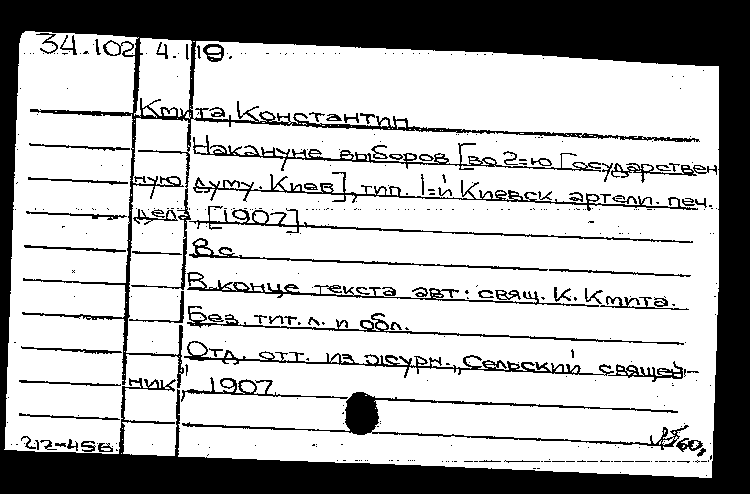 34.102 4.119.
Кмита, Константин
Накануне выборов [во 2=ю Государствен
ную думу. Киев], тип. I=й Киевск. артели печ.
дела, [1907].
8 с.
В конце текста авт: свящ. К. Кмита.
Без. тит. л. и обл.
Отд. отт. из журн. „Сельский священ-
ник", 1907
212-456